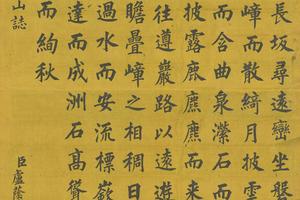 長坂尋遠巒坐盤
嶂而散綺月披雲
而含曲泉瀠石而
披露鹿麃麃而來
往遵巖路以遠遊
瞻疊嶂之相稠日
過水而安流標嶽
達而成洲石高聳
而絢秋
山誌
臣盧蔭